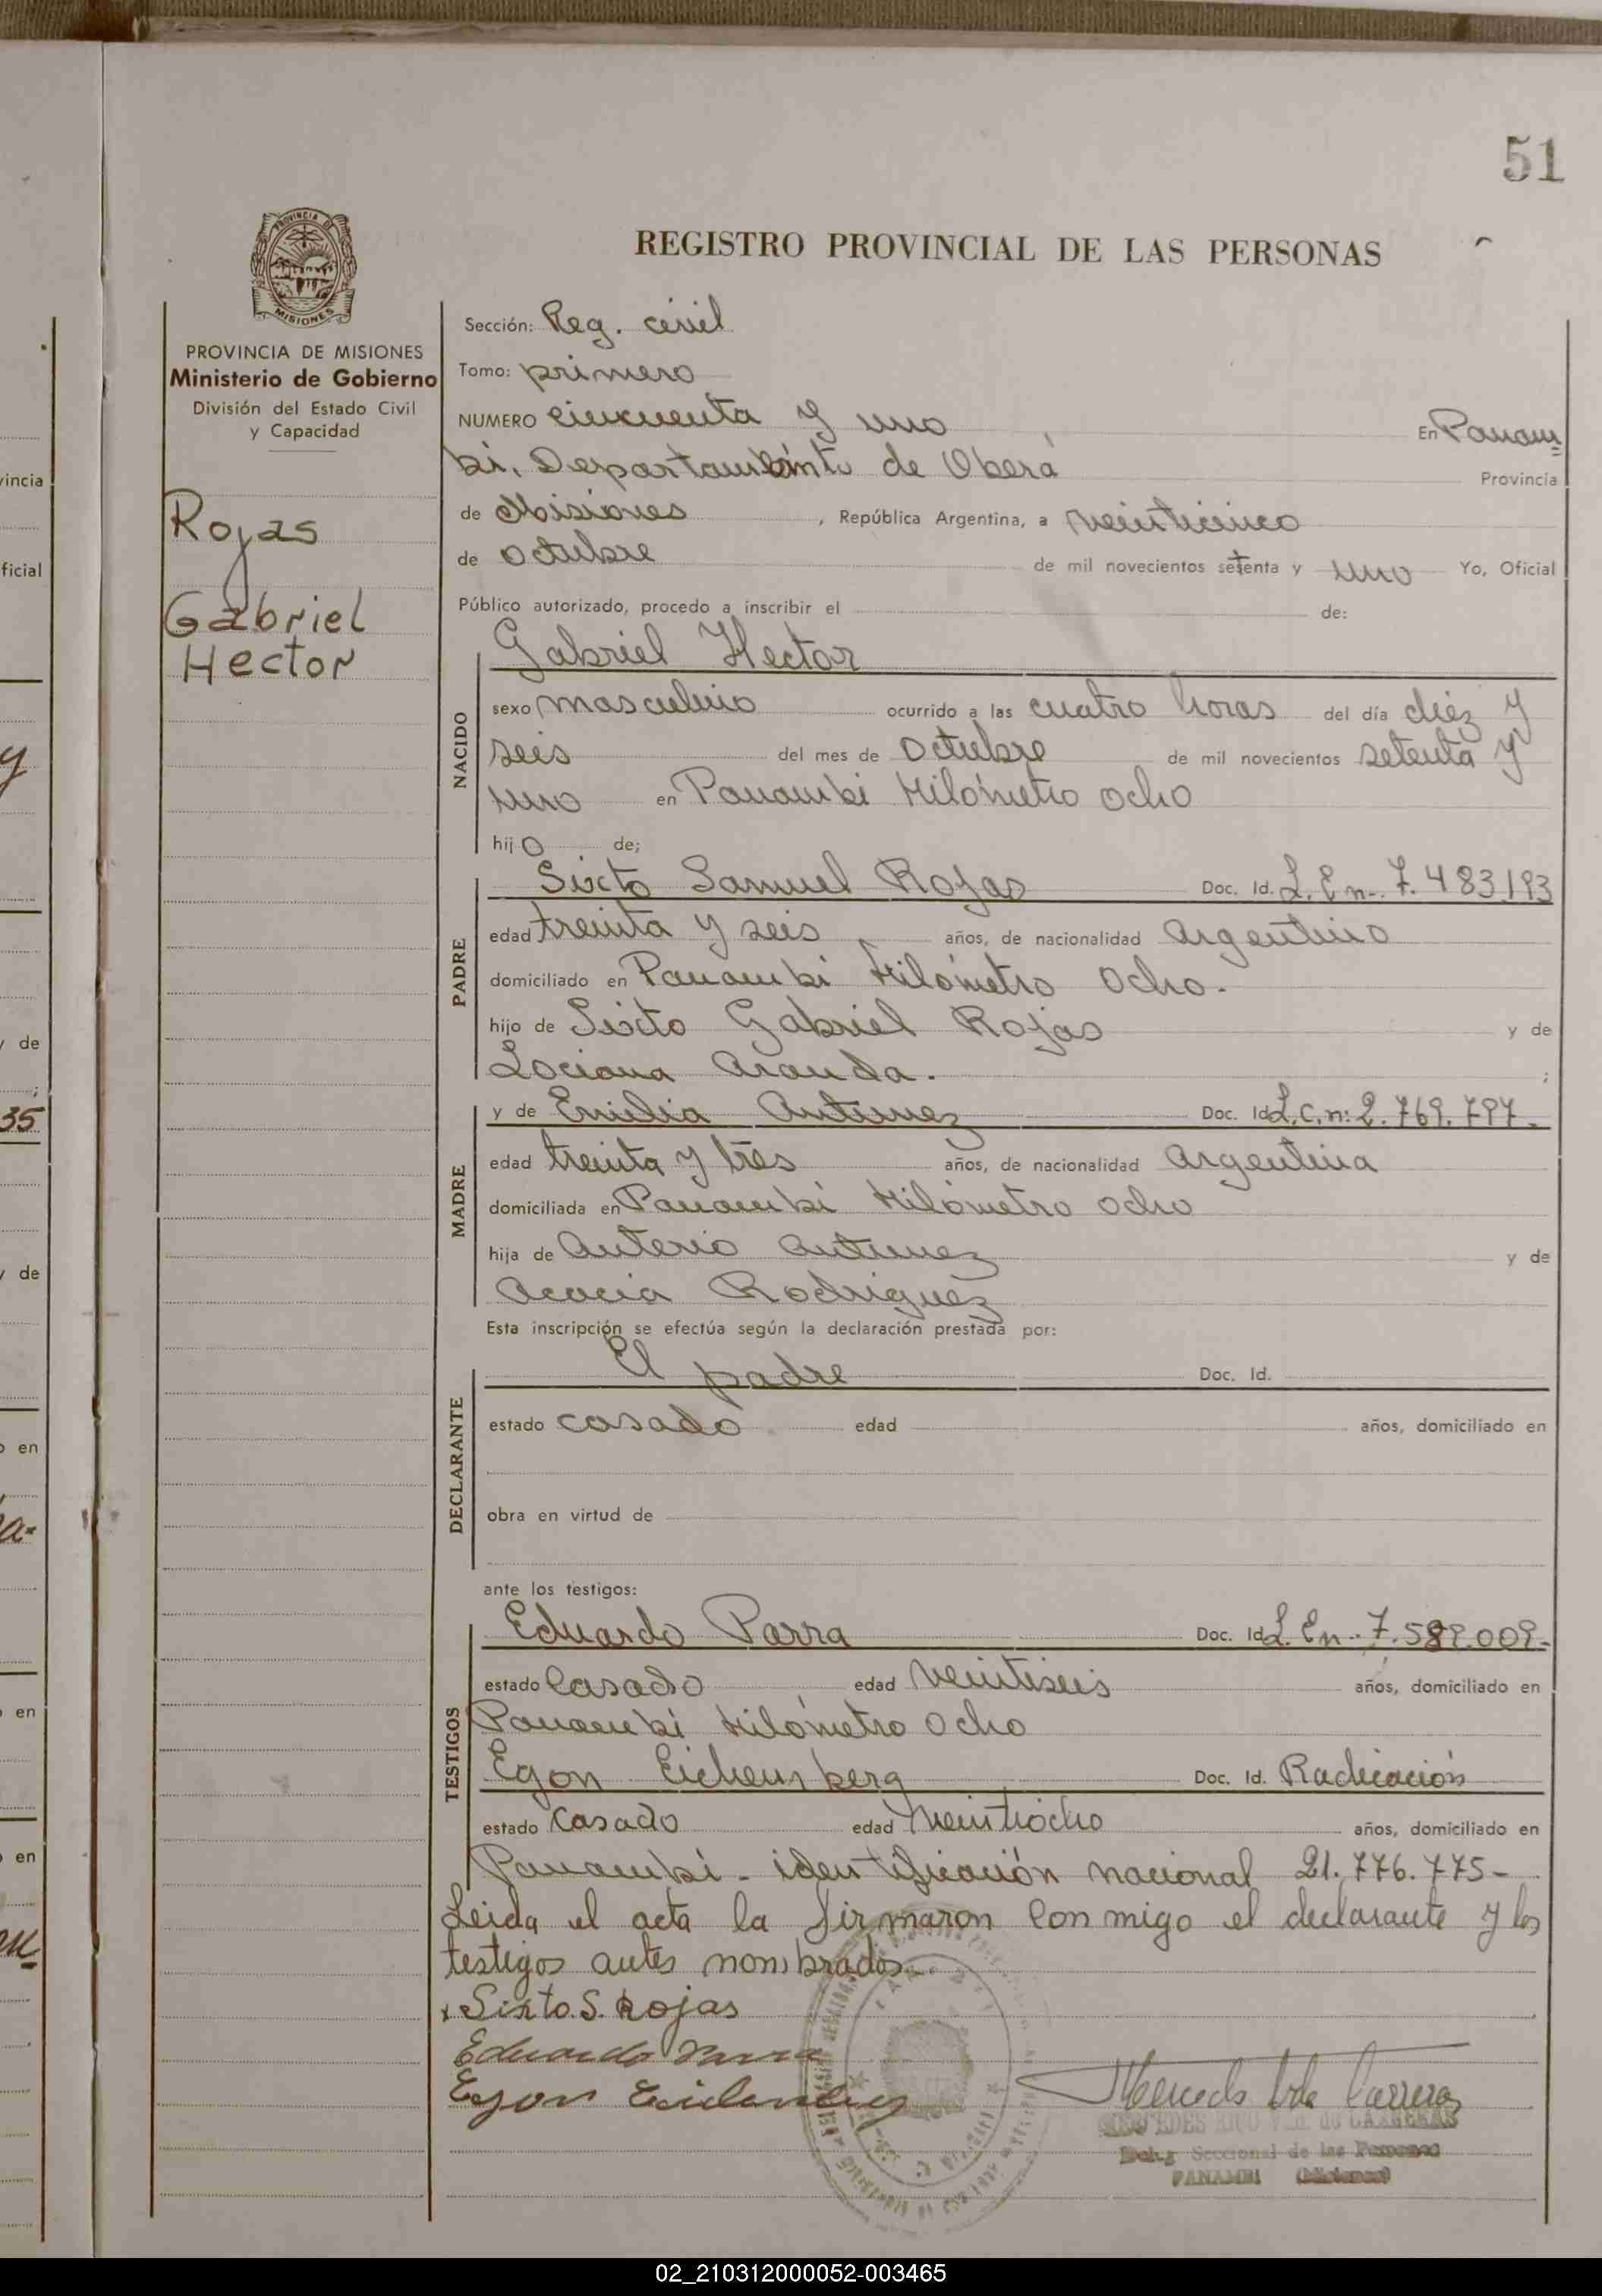 51
REGISTRO PROVINCIAL DE LAS PERSONAS
PROVINCIA DE MISIONES
Ministerio de Gobierno
División del Estado Civil
y Capacidad
Rojas
Gabriel
Hector
Sección: Reg. civil
Tomo: primero
NUMERO cincuenta y uno En Panam
bi, Departamento de Oberá Provincia
de Misiones, República Argentina, a veinticinco
de octubre de mil novecientos setenta y uno Yo, Oficial
Público autorizado, procedo a inscribir el de:
Gabriel Hector
NACIDO
sexo masculino ocurrido a las cuatro horas del día diez y
seis del mes de octubre de mil novecientos setenta y
uno en Panambi Kilómetro ocho
hijo de;
PADRE
Sixto Samuel Rojas Doc. Id. L. En. 7.483.193
edad treinta y seis años, de nacionalidad argentino
domiciliado en Panambi Kilómetro ocho.
hijo de Sixto Gabriel Rojas y de
Lociana Aranda. ;
MADRE
y de Emilia Antunez Doc. Id. L.C.n: 2.769.797.
edad treinta y tres años, de nacionalidad argentina
domiciliada en Panambi Kilómetro ocho
hija de Anterio Antunez y de
Acacia Rodriguez
Esta inscripción se efectúa según la declaración prestada por:
DECLARANTE
El padre Doc. Id.
estado casado edad años, domiciliado en
obra en virtud de
ante los testigos:
TESTIGOS
Eduardo Parra Doc. Id. L. En. 7.589.009-
estado casado edad veintiseis años, domiciliado en
Panambi Kilómetro ocho
Egon Eichemberg Doc. Id. Radicación
estado casado edad veintiocho años, domiciliado en
Panambí - identificación nacional 21.776.775-
Leida el acta la firmaron conmigo el declarante y los
testigos antes nombrados.-
x Sixto. S. Rojas
Eduardo Parra
Egon
PANAMBI (Misiones)
02_210312000052-003465